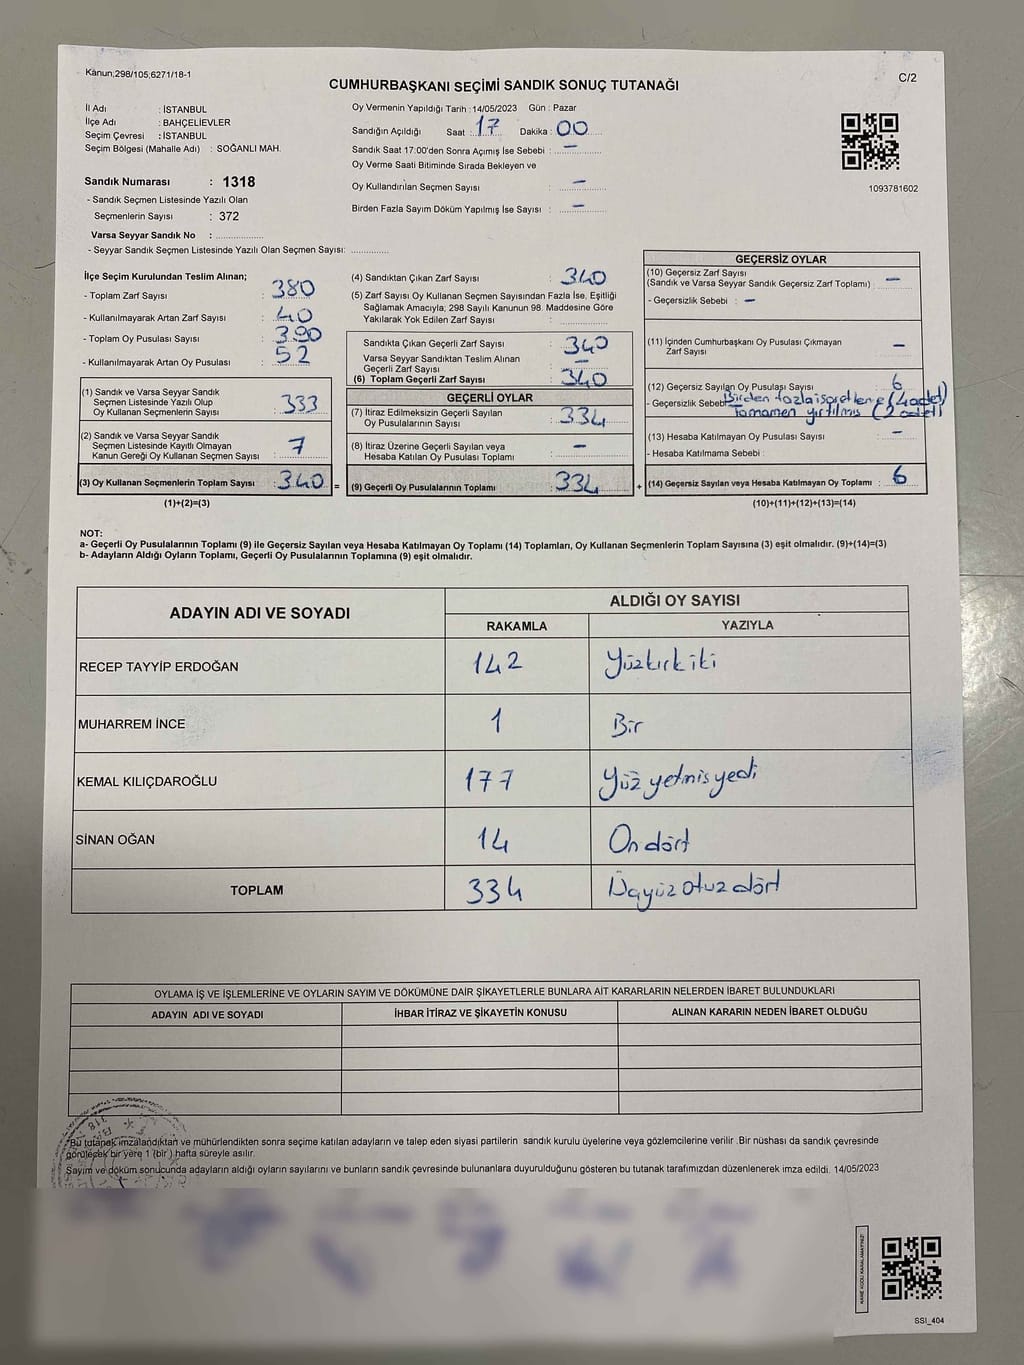 Kanun;298/105,6271/18-1
C/2
CUMHURBAŞKANI SEÇİMİ SANDIK SONUÇ TUTANAĞI
İl Adı : İSTANBUL
İlçe Adı : BAHÇELİEVLER
Seçim Çevresi : İSTANBUL
Seçim Bölgesi (Mahalle Adı) : SOĞANLI MAH.
Sandık Numarası : 1318
- Sandık Seçmen Listesinde Yazılı Olan
Seçmenlerin Sayısı : 372
Varsa Seyyar Sandık No : ..............
- Seyyar Sandık Seçmen Listesinde Yazılı Olan Seçmen Sayısı: ..............
Oy Vermenin Yapıldığı Tarih : 14/05/2023 Gün : Pazar
Sandığın Açıldığı Saat : 17 Dakika : 00
Sandık Saat 17:00'den Sonra Açımış İse Sebebi : —
Oy Verme Saati Bitiminde Sırada Bekleyen ve
Oy Kullandırılan Seçmen Sayısı : —
Birden Fazla Sayım Döküm Yapılmış İse Sayısı : —
1093781602
İlçe Seçim Kurulundan Teslim Alınan;
- Toplam Zarf Sayısı : 380
- Kullanılmayarak Artan Zarf Sayısı : 40
- Toplam Oy Pusulası Sayısı : 390
- Kullanılmayarak Artan Oy Pusulası : 52
(1) Sandık ve Varsa Seyyar Sandık
Seçmen Listesinde Yazılı Olup
Oy Kullanan Seçmenlerin Sayısı : 333
(2) Sandık ve Varsa Seyyar Sandık
Seçmen Listesinde Kayıtlı Olmayan
Kanun Gereği Oy Kullanan Seçmen Sayısı : 7
(3) Oy Kullanan Seçmenlerin Toplam Sayısı : 340 =
(1)+(2)=(3)
(4) Sandıktan Çıkan Zarf Sayısı : 340
(5) Zarf Sayısı Oy Kullanan Seçmen Sayısından Fazla İse, Eşitliği
Sağlamak Amacıyla; 298 Sayılı Kanunun 98. Maddesine Göre
Yakılarak Yok Edilen Zarf Sayısı : ..............
Sandıkta Çıkan Geçerli Zarf Sayısı : 340
Varsa Seyyar Sandıktan Teslim Alınan
Geçerli Zarf Sayısı : —
(6) Toplam Geçerli Zarf Sayısı : 340
GEÇERLİ OYLAR
(7) İtiraz Edilmeksizin Geçerli Sayılan
Oy Pusulasının Sayısı : 334
(8) İtiraz Üzerine Geçerli Sayılan veya
Hesaba Katılan Oy Pusulası Toplamı : —
(9) Geçerli Oy Pusulalarının Toplamı : 334 +
GEÇERSİZ OYLAR
(10) Geçersiz Zarf Sayısı
(Sandık ve Varsa Seyyar Sandık Geçersiz Zarf Toplamı) : —
- Geçersizlik Sebebi : —
(11) İçinden Cumhurbaşkanı Oy Pusulası Çıkmayan
Zarf Sayısı : —
(12) Geçersiz Sayılan Oy Pusulası Sayısı : 6
- Geçersizlik Sebebi Birden fazla işaretleme (4 adet)
Tamamen yırtılmış (2 adet)
(13) Hesaba Katılmayan Oy Pusulası Sayısı : —
- Hesaba Katılmama Sebebi :
(14) Geçersiz Sayılan veya Hesaba Katılmayan Oy Toplamı : 6
(10)+(11)+(12)+(13)=(14)
NOT:
a- Geçerli Oy Pusulalarının Toplamı (9) ile Geçersiz Sayılan veya Hesaba Katılmayan Oy Toplamı (14) Toplamları, Oy Kullanan Seçmenlerin Toplam Sayısına (3) eşit olmalıdır. (9)+(14)=(3)
b- Adayların Aldığı Oyların Toplamı, Geçerli Oy Pusulalarının Toplamına (9) eşit olmalıdır.
ADAYIN ADI VE SOYADI
ALDIĞI OY SAYISI
RAKAMLA YAZIYLA
RECEP TAYYİP ERDOĞAN 142 Yüzkırk iki
MUHARREM İNCE 1 Bir
KEMAL KILIÇDAROĞLU 177 Yüz yetmiş yedi
SİNAN OĞAN 14 On dört
TOPLAM 334 Üçyüz otuz dört
OYLAMA İŞ VE İŞLEMLERİNE VE OYLARIN SAYIM VE DÖKÜMÜNE DAİR ŞİKAYETLERLE BUNLARA AİT KARARLARIN NELERDEN İBARET BULUNDUKLARI
ADAYIN ADI VE SOYADI İHBAR İTİRAZ VE ŞİKAYETİN KONUSU ALINAN KARARIN NEDEN İBARET OLDUĞU
Bu tutanak imzalandıktan ve mühürlendikten sonra seçime katılan adayların ve talep eden siyasi partilerin sandık kurulu üyelerine veya gözlemcilerine verilir .Bir nüshası da sandık çevresinde
görülecek bir yere 1 (bir ) hafta süreyle asılır.
Sayım ve döküm sonucunda adayların aldığı oyların sayılarını ve bunların sandık çevresinde bulunanlara duyurulduğunu gösteren bu tutanak tarafımızdan düzenlenerek imza edildi. 14/05/2023
KARE KODU KARALAMAYINIZ!
SSI_404